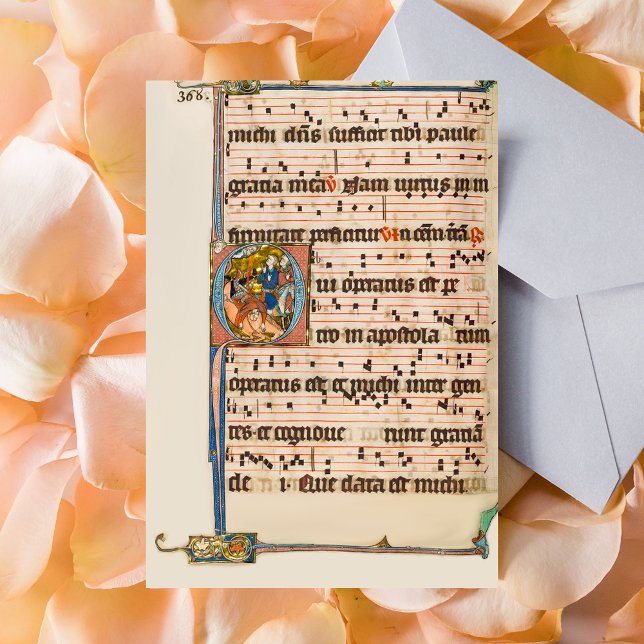 368.
michi dñs sufficit tibi paule
gratia mea ℣ Nam uirtus in in
firmitate perficitur
ui operatus est pe
tro in apostola tum
operatus est et michi inter gen
tes et cognoue runt gratiã
de i. Que data est michi